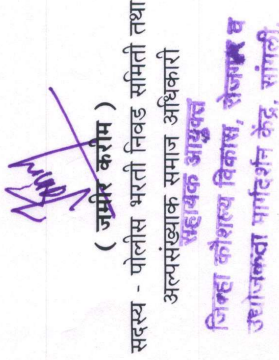 ( जमीर करीम )
सदस्य - पोलीस भरती निवड समिती तथा
अल्पसंख्याक समाज अधिकारी
सहायक आयुक्त
जिल्हा कौशल्य विकास, रोजगार व
उद्योजकता मार्गदर्शन केंद्र सांगली.